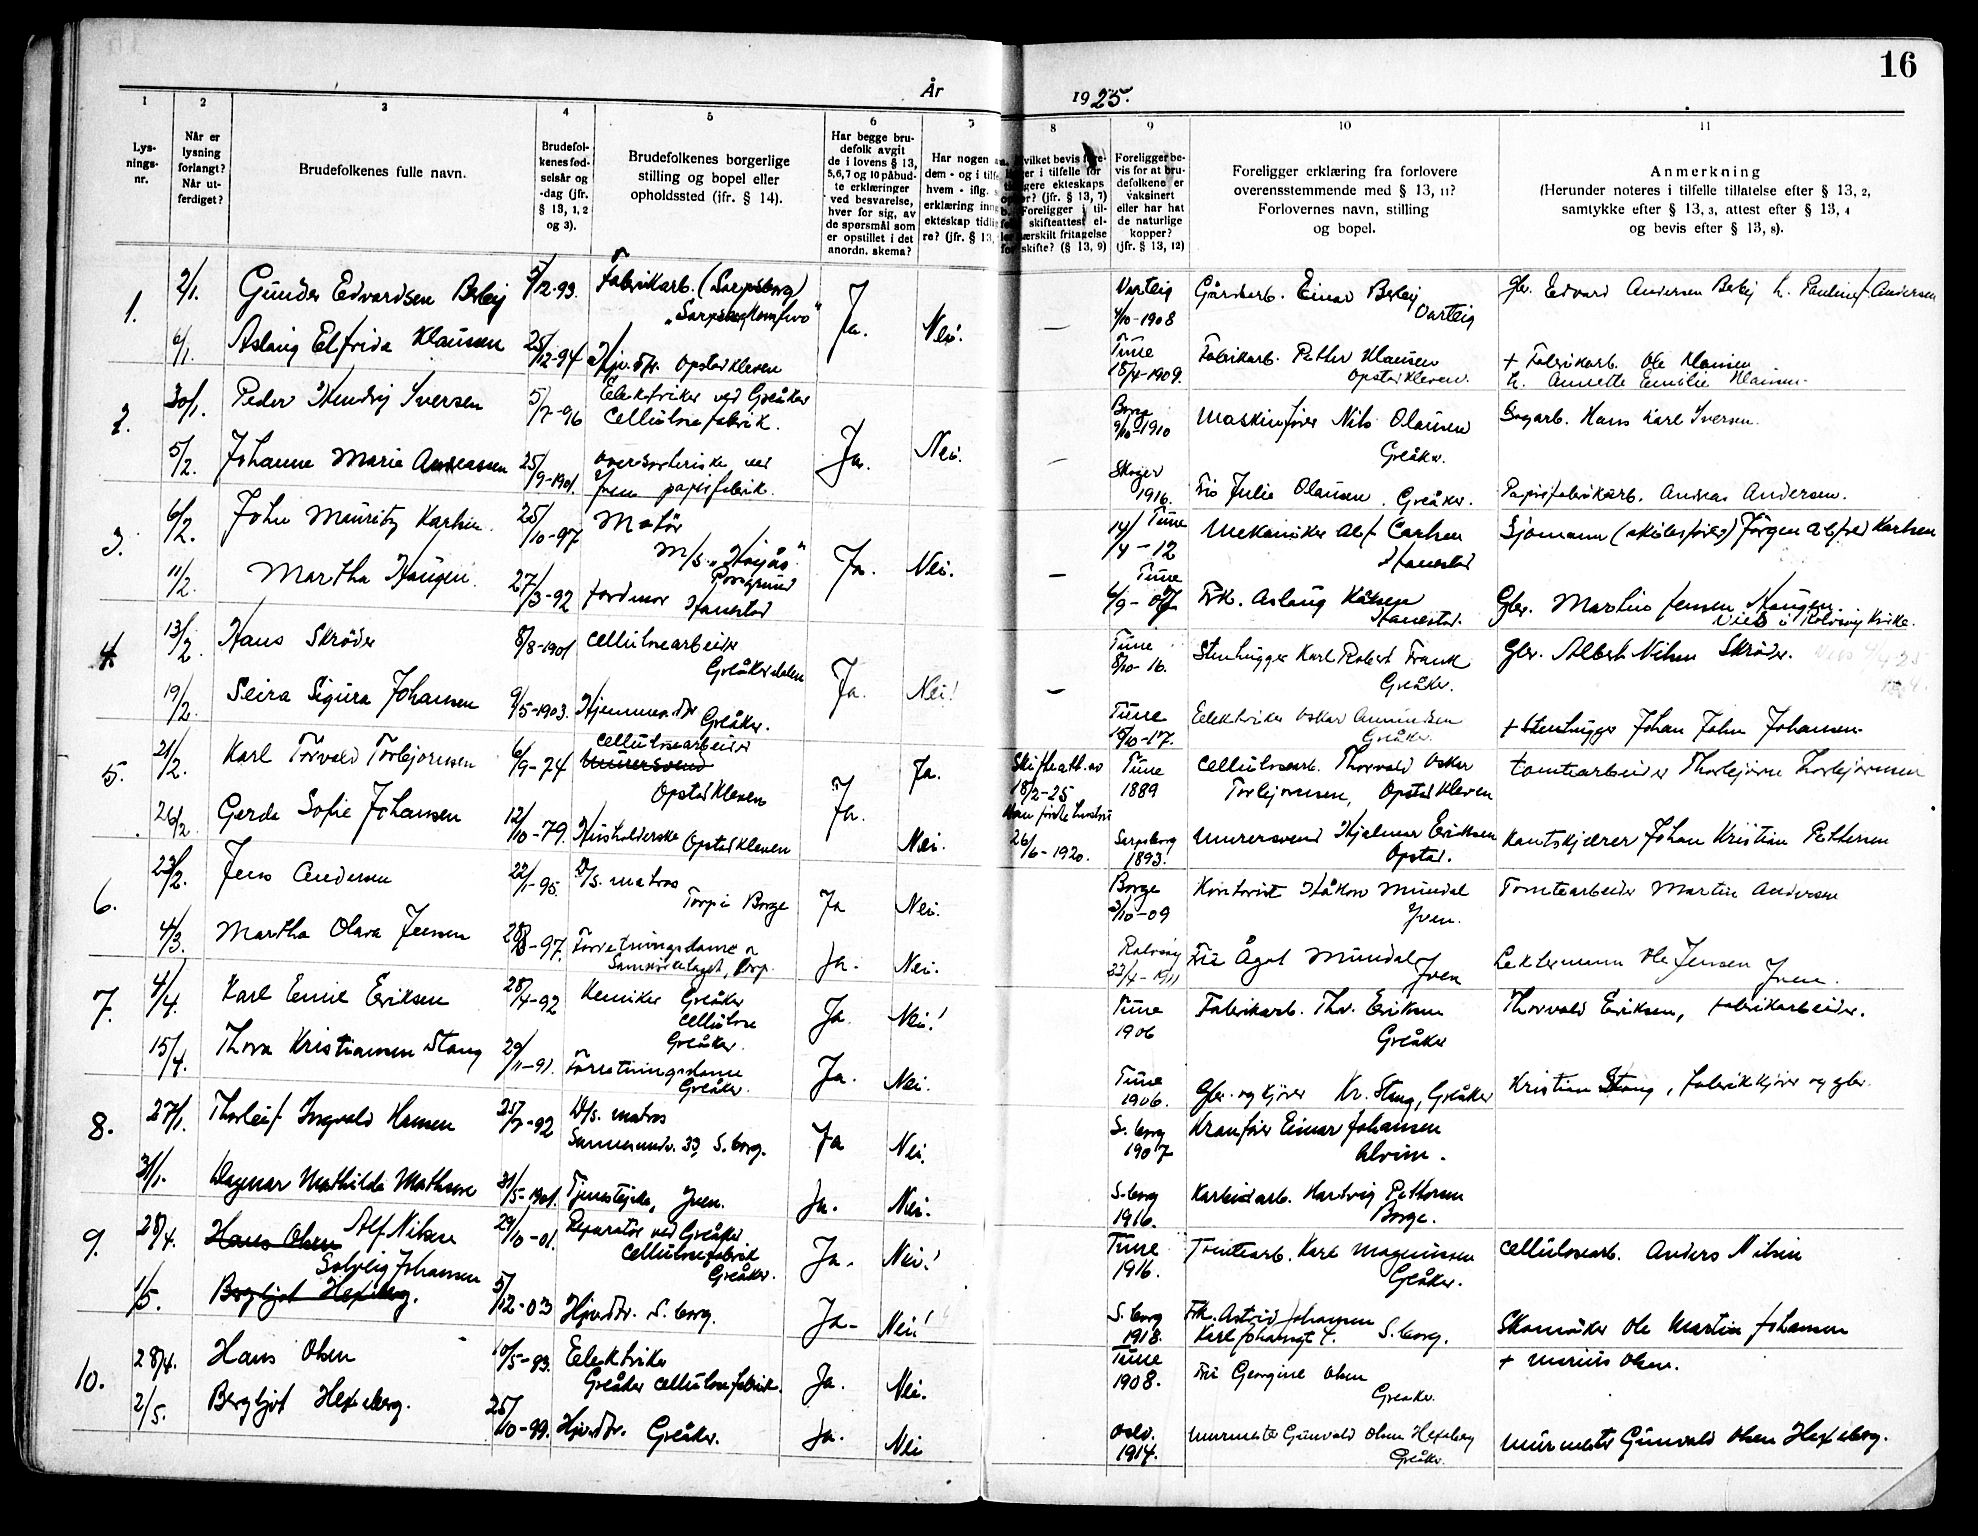 16
År 1925.
1 2 3 4 5 6 7 8 9 10 11
Lys-
nings-
nr.
Når er
lysning
forlangt?
Når ut-
ferdiget?
Brudefolkenes fulle navn.
Brudefol-
kenes fød-
selsår og
-dag (jfr.
§ 13, 1, 2
og 3).
Brudefolkenes borgerlige
stilling og bopel eller
opholdssted (jfr. § 14).
Har begge bru-
defolk avgit
de i lovens § 13,
5,6,7 og 10 påbud-
te erklæringer
ved besvarelse,
hver for sig, av
de spørsmål som
er opstillet i det
anordn. skema?
Har nogen
dem - og i
hvem - iflg.
erklæring
ekteskap
re? (jfr. § 13,
Foreligger be-
vis for at bru-
defolkene er
vaksinert
eller har hat
de naturlige
kopper?
(jfr. § 13, 12)
Foreligger erklæring fra forlovere
overensstemmende med § 13, 11?
Forlovernes navn, stilling
og bopel.
Anmerkning
(Herunder noteres i tilfelle tillatelse efter § 13, 2,
samtykke efter § 13, 3, attest efter § 13, 4
og bevis efter § 13, 8).
1. 2/1. Gunder Edvardsen Berby 5/12-93. Fabrikarb. (Sarpsborg) Ja. Nei. — Varteig 4/10-1908 Gårdarb. Einar Berby Varteig Gbr. Edvard Andersen Berby
6/1. Aslaug Elfrida Klausen 25/12-94 Hjv. dtr. Opstadkleven Tune 18/4-1909. Fabrikarb. Petter Klausen Opstadkleven. + Fabrikarb. Ole Klausen
h. Annette Emilie Klausen.
2. 30/1. Peder Hendrij Iversen 5/7-96 Elektriker ved Greåker
Cellulosefabrik. Ja. Nei. — Borge 9/10-1910 Maskinfører Nils Olausen Greåker. Sagarb. Hans Karl Iversen.
5/2. Johanne Marie Andreassen 25/9-1901. Oversorterske ved
Yven papirfabrik. Skoger 1916. Fru Julie Olausen. Greåker. Papirfabrikarb. Andreas Andersen.
3. 6/2. John Mauritz Karlsen. 25/10-97 Matros
M/S. "Høyås"
Porsgrund Ja. Nei. — 14/4-12 Tune Mekaniker Alf Carlsen Hanestad Sjømann Jørgen Alfred Karlsen
11/2. Martha Haugen. 27/3-92 Jordmor Hanestad Tune 6/9-07 Frk. Aslaug Hanestad. Gbr. Martin Jensen Haugen.
Viet i Rolvsøy Kirke.
4. 13/2 Hans Skrøder 8/8-1901 Cellulosearbeider
Greåkerdalen Ja. Nei! — Tune 8/10-16. Stenhugger Karl Robert Frank Greåker. Gbr. Albert Nilsen Skrøder.
19/2. Seira Sigura Johansen 9/5-1903. Hjemmev. dtr Greåker. Tune 15/10-17. Elektriker Oskar Amundsen Greåker. + Stenhugger Johan John Johansen
5. 21/2. Karl Torvald Torbjørnsen 6/9-74 Cellulosearbeider
Murersvend
Opstadkleven Ja. Ja. Skifteatt. av
18/2-25 Tune 1889 Cellulosearb. Thorvald Oskar
Torbjørnsen, Opstadkleven Tomtearbeider Thorbjørn Thorbjørnsen
26/2. Gerda Sofie Johansen 12/10-79. Husholderske Opstadkleven Nei. 26/6-1920. Sarpsborg 1893. Murersvend Hjalmar Eriksen Opstad. Kantskjærer Johan Kristian Pettersen
6. 23/2. Jens Andersen 22/1-95. D/S. matros
Torp i Borge Ja Nei. Borge 3/10-09 Kontorist Håkon Mundal Yven. Tomtearbeider Martin Andersen
4/3. Martha Olava Jensen 28/8-97. Forretningsdame v
Samvirkelaget, Torp. Ja. Nei. Rolvsøy 23/4-1911 Fru Ågot Mundal Yven Lektermann Ole Jensen Yven.
7. 4/4. Karl Emil Eriksen 28/4-92 Kemiker Greåker
Cellulose
Greåker. Ja. Nei! Tune 1906 Fabrikarb. Thv. Eriksen Greåker Thorvald Eriksen, fabrikarbeider.
15/4. Thora Kristiansen Stang 29/11-91. Forretningsdame
Greåker. Ja. Nei. Tune 1906. Gbr. og kjører Kr. Stang, Greåker Kristian Stang, fabrikkjører og gbr.
8. 27/1. Thorleif Ingvald Hansen 25/7-92 D/S. matros
Sannesundv. 39, S.borg. Ja Nei. S.borg 1907 Kranfører Einar Johansen
Alvim.
31/1. Dagmar Mathilde Mathisen 31/5-1901. Tjenestepike, Yven. Ja. Nei. S.borg 1916. Karbidarb. Hartvig Pettersen
Borge.
9. 28/4. Hans Olsen Alf Nilsen 29/10-01. Reparatør ved Greåker
Cellulosefabrik
Greåker. Ja. Nei! Tune 1916. Tomtearb. Karl Magnussen
Greåker. Cellulosearb. Anders Nilsen
1/5. Solveig Johansen
Bergljot Hexeberg. 5/12-03 Hjv. dtr. S.borg. Ja. Nei! S.borg 1918. Frk. Astrid Johansen
S.borg. Skomaker Ole Martin Johansen
10. 28/4. Hans Olsen 10/5-83. Elektriker
Greåker Cellulosefabrik. Ja. Nei. Tune 1908. Fru Georgine Olsen
Greåker. + Marius Olsen.
2/5. Bergljot Hexeberg. 25/10-99. Hjv. dtr. Greåker. Ja. Nei Oslo. 1914. Murmester Gunvald Olsen Hexeberg
Greåker. Murmester Gunvald Olsen Hexeberg.